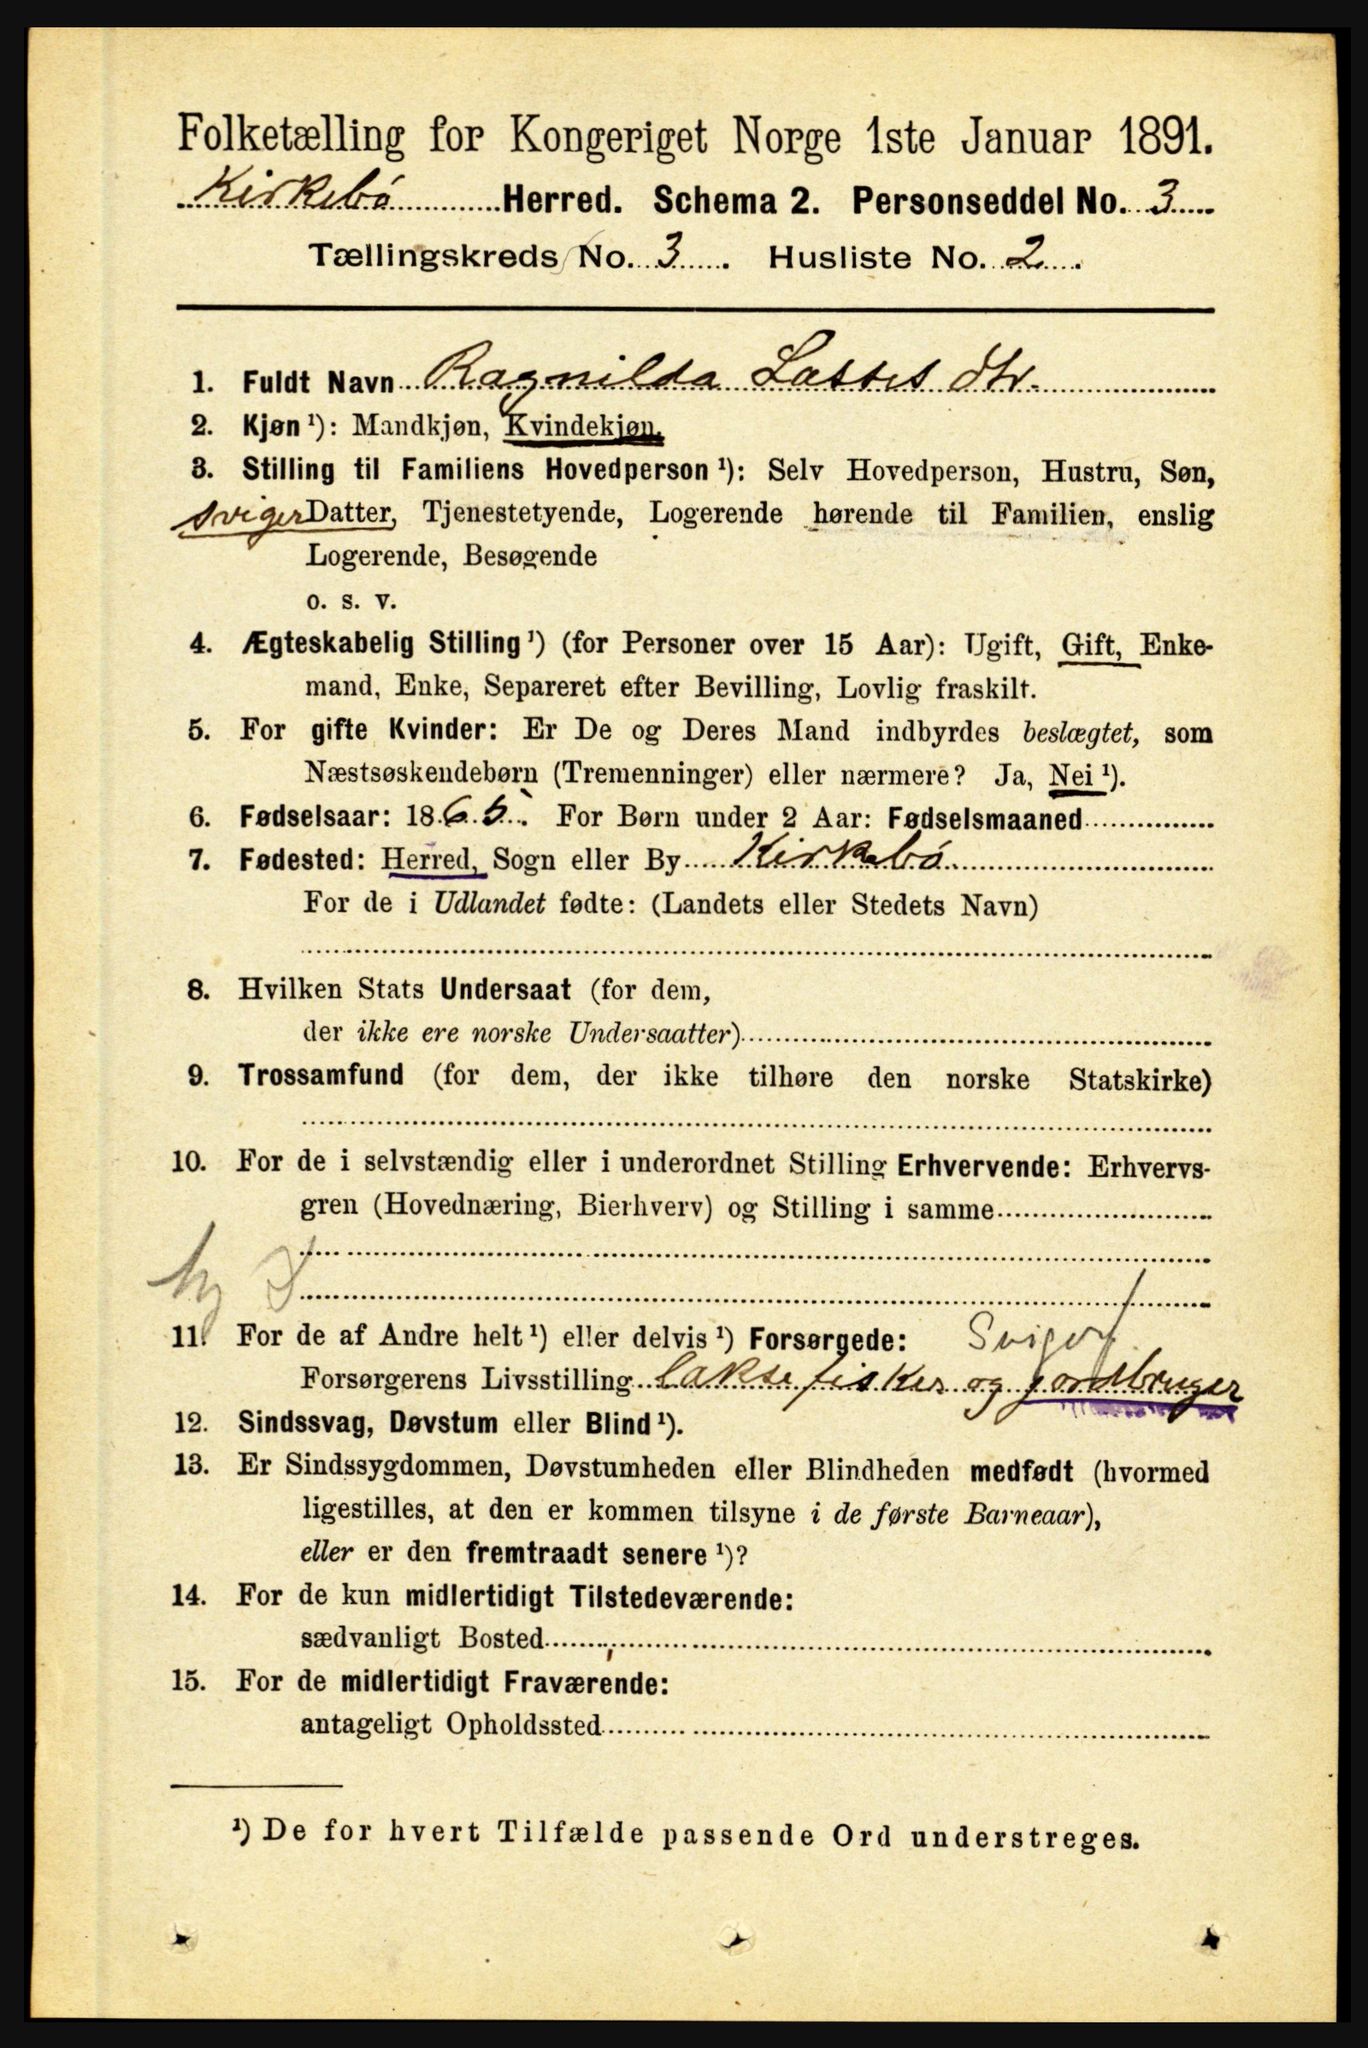 Folketælling for Kongeriget Norge 1ste Januar 1891.
Kirkebø Herred. Schema 2. Personseddel No. 3
Tællingskreds No. 3. Husliste No. 2.
1. Fuldt Navn Ragnilda Lasses dtr.
2. Kjøn ¹): Mandkjøn, Kvindekjøn.
3. Stilling til Familiens Hovedperson ¹): Selv Hovedperson, Hustru, Søn,
sviger Datter, Tjenestetyende, Logerende hørende til Familien, enslig
Logerende, Besøgende
o. s. v.
4. Ægteskabelig Stilling ¹) (for Personer over 15 Aar): Ugift, Gift, Enke-
mand, Enke, Separeret efter Bevilling, Lovlig fraskilt.
5. For gifte Kvinder: Er De og Deres Mand indbyrdes beslægtet, som
Næstsøskendebørn (Tremenninger) eller nærmere? Ja, Nei ¹).
6. Fødselsaar: 1865. For Børn under 2 Aar: Fødselsmaaned
7. Fødested: Herred, Sogn eller By Kirkebø
For de i Udlandet fødte: (Landets eller Stedets Navn)
8. Hvilken Stats Undersaat (for dem,
der ikke ere norske Undersaatter)
9. Trossamfund (for dem, der ikke tilhøre den norske Statskirke)
10. For de i selvstændig eller i underordnet Stilling Erhvervende: Erhvervs-
gren (Hovednæring, Bierhverv) og Stilling i samme
11. For de af Andre helt ¹) eller delvis ¹) Forsørgede: Svigerf
Forsørgerens Livsstilling Laksefisker og jordbruger
12. Sindssvag, Døvstum eller Blind ¹).
13. Er Sindssygdommen, Døvstumheden eller Blindheden medfødt (hvormed
ligestilles, at den er kommen tilsyne i de første Barneaar),
eller er den fremtraadt senere ¹)?
14. For de kun midlertidigt Tilstedeværende:
sædvanligt Bosted
15. For de midlertidigt Fraværende:
antageligt Opholdssted
¹) De for hvert Tilfælde passende Ord understreges.